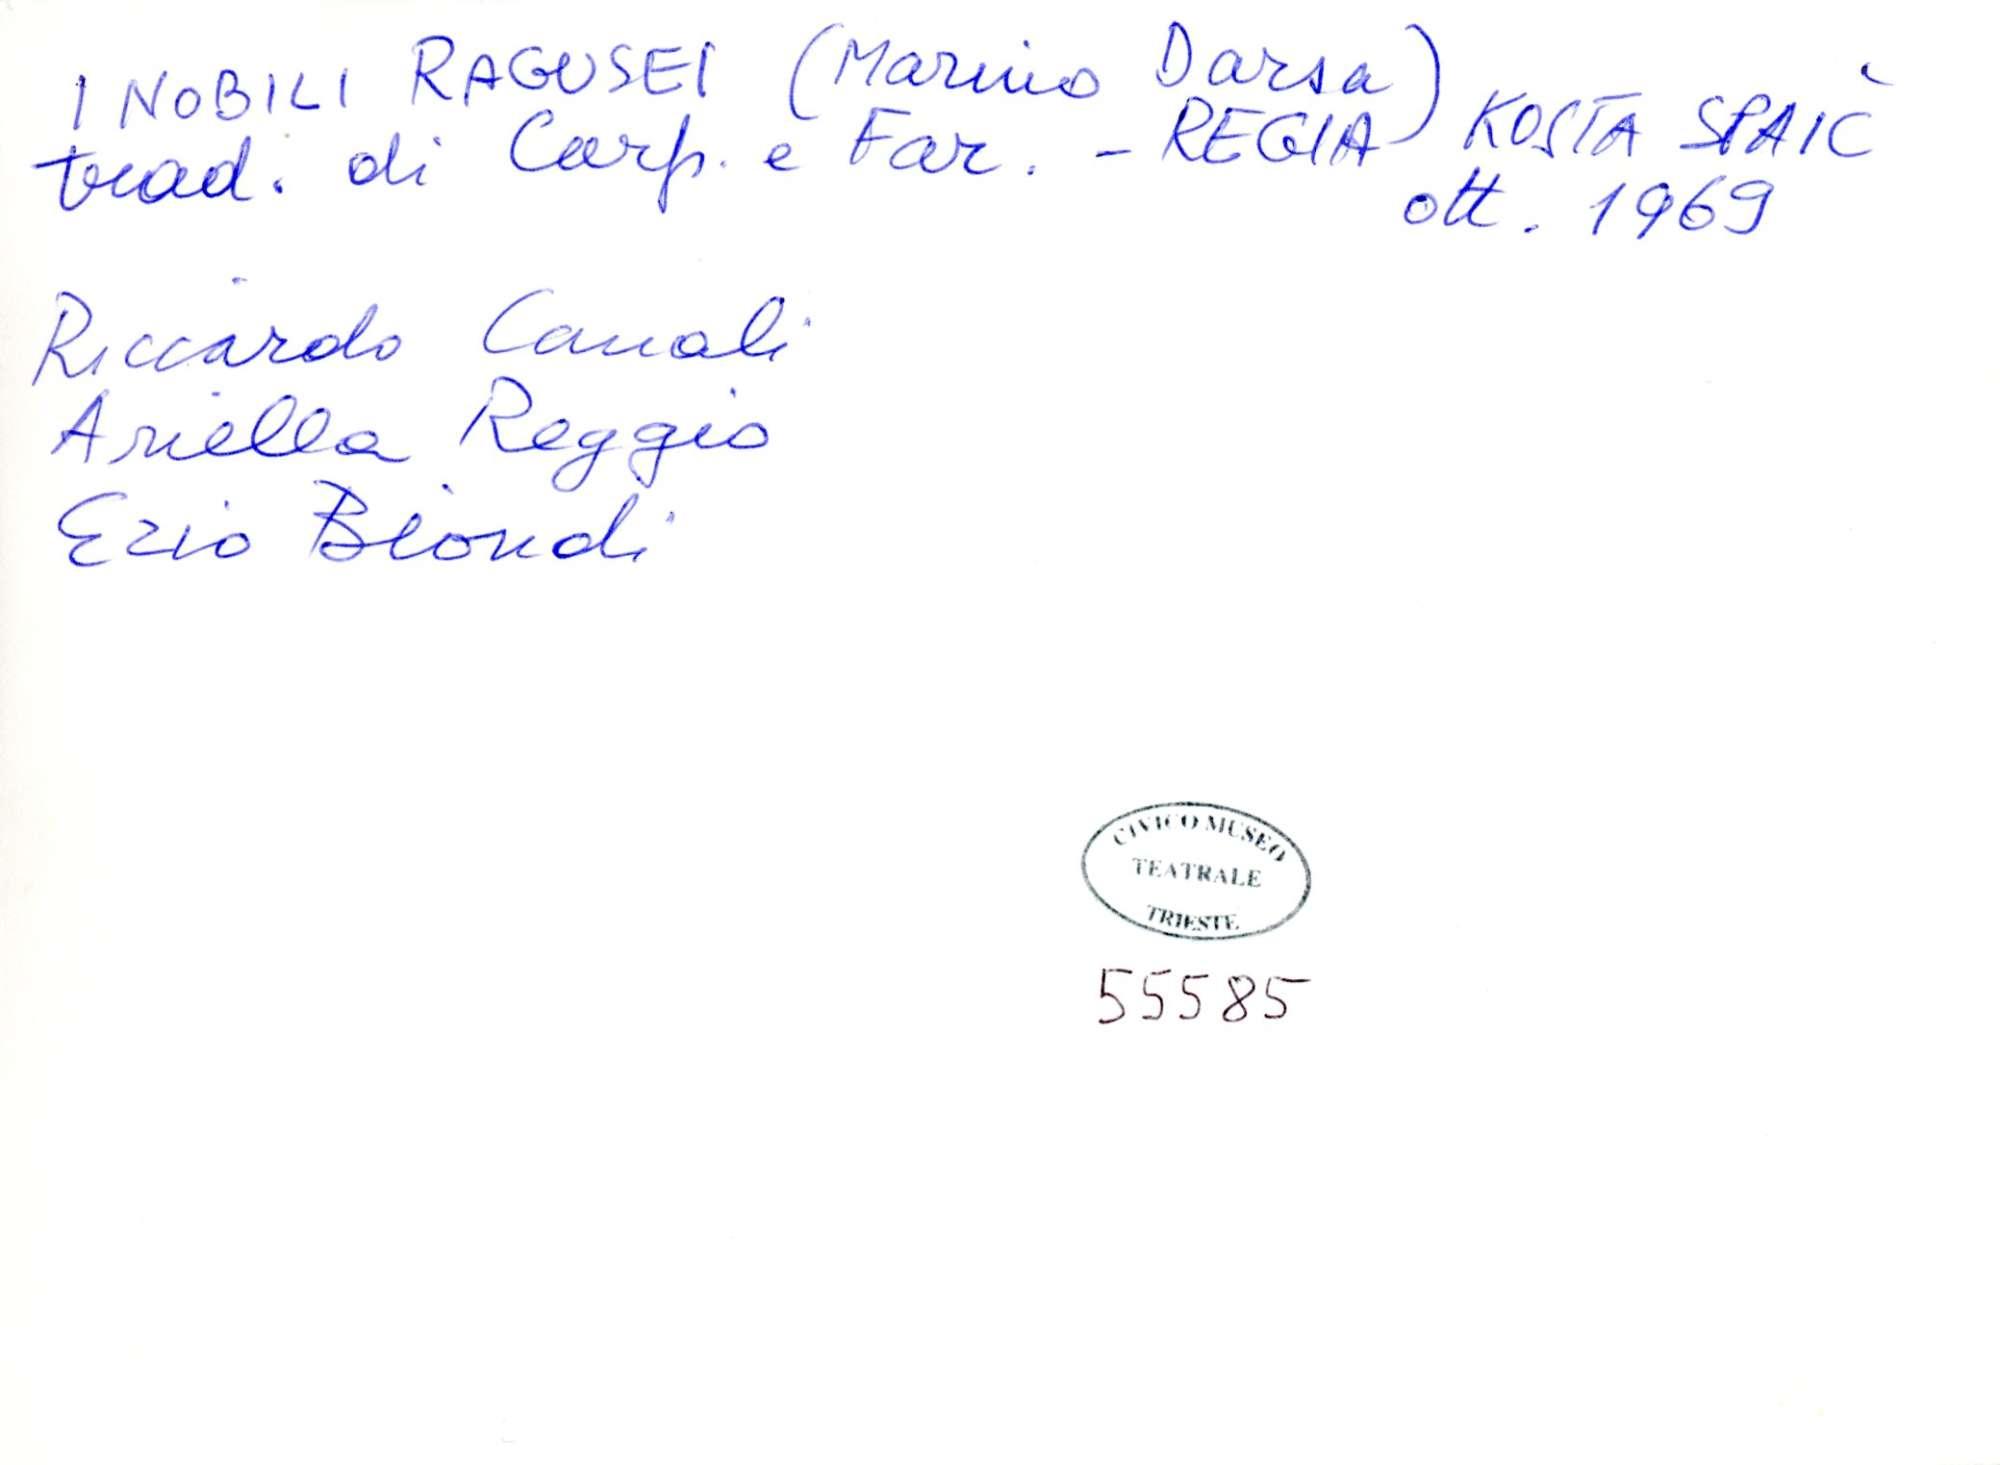 I NOBILI RAGUSEI (Marino Darsa)
trad. di Carp. e Far. - REGIA KOSTA SPAIČ
ott. 1969
Riccardo Canali
Ariella Reggio
Ezio Biondi
CIVICO MUSEO
TEATRALE
TRIESTE
55585